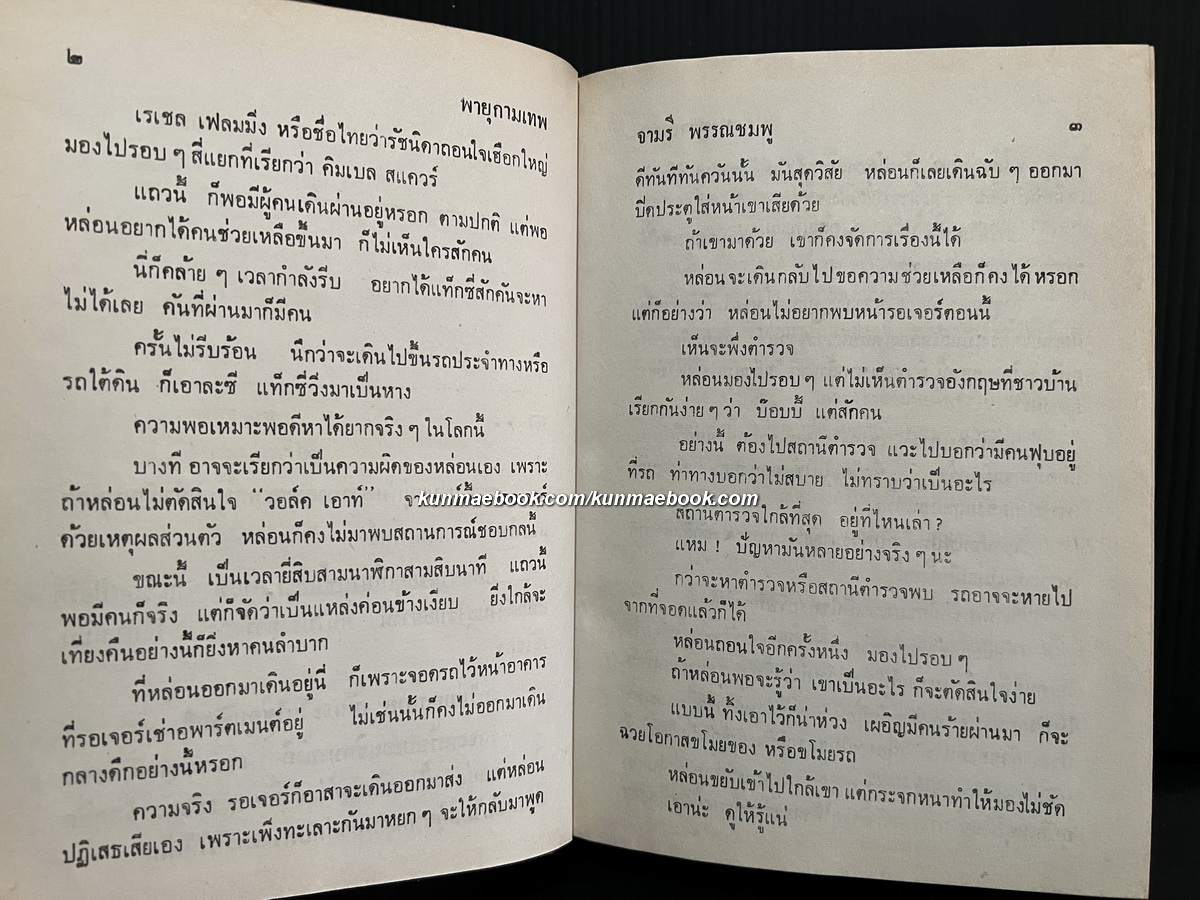 ๒
พายุกามเทพ
เรเชล เฟลมมิ่ง หรือชื่อไทยว่ารัชนิดาถอนใจเฮือกใหญ่
มองไปรอบ ๆ สี่แยกที่เรียกว่า คิมเบล สแควร์
แถวนี้ ก็พอมีผู้คนเดินผ่านอยู่หรอก ตามปกติ แต่พอ
หล่อนอยากได้คนช่วยเหลือขึ้นมา ก็ไม่เห็นใครสักคน
นี่ก็คล้าย ๆ เวลากำลังรีบ อยากได้แท็กซี่สักคันจะหา
ไม่ได้เลย คันที่ผ่านมาก็มีคน
ครั้นไม่รีบร้อน นึกว่าจะเดินไปขึ้นรถประจำทางหรือ
รถใต้ดิน ก็เอาละซี แท็กซี่วิ่งมาเป็นหาง
ความพอเหมาะพอดีหาได้ยากจริง ๆ ในโลกนี้
บางที อาจจะเรียกว่าเป็นความผิดของหล่อนเอง เพราะ
ถ้าหล่อนไม่ตัดสินใจ “วอล์ค เอาท์”
kunmaebook.com/kunmaebook.com
ด้วยเหตุผลส่วนตัว หล่อนก็คงไม่มาพบสถานการณ์ชอบกลนี้
ขณะนี้ เป็นเวลายี่สิบสามนาฬิกาสามสิบนาที แถวนี้
พอมีคนก็จริง แต่ก็จัดว่าเป็นแหล่งค่อนข้างเงียบ ยิ่งใกล้จะ
เที่ยงคืนอย่างนี้ก็ยิ่งหาคนลำบาก
ที่หล่อนออกมาเดินอยู่นี่ ก็เพราะจอดรถไว้หน้าอาคาร
ที่รอเจอร์เช่าอพาร์ตเมนต์อยู่ ไม่เช่นนั้นก็คงไม่ออกมาเดิน
กลางดึกอย่างนี้หรอก
ความจริง รอเจอร์ก็อาสาจะเดินออกมาส่ง แต่หล่อน
ปฏิเสธเสียเอง เพราะเพิ่งทะเลาะกันมาหยก ๆ จะให้กลับมาพูด
จามรี พรรณชมพู
๓
ดีทันทีทันควันนั้น มันสุดวิสัย หล่อนก็เลยเดินฉับ ๆ ออกมา
ปิดประตูใส่หน้าเขาเสียด้วย
ถ้าเขามาด้วย เขาก็คงจัดการเรื่องนี้ได้
หล่อนจะเดินกลับไปขอความช่วยเหลือก็คงได้หรอก
แต่ก็อย่างว่า หล่อนไม่อยากพบหน้ารอเจอร์ตอนนี้
เห็นจะพึ่งตำรวจ
หล่อนมองไปรอบ ๆ แต่ไม่เห็นตำรวจอังกฤษที่ชาวบ้าน
เรียกกันง่าย ๆ ว่า บ๊อบบี้ แต่สักคน
อย่างนี้ ต้องไปสถานีตำรวจ แวะไปบอกว่ามีคนฟุบอยู่
ที่รถ ท่าทางบอกว่าไม่สบาย ไม่ทราบว่าเป็นอะไร
สถานีตำรวจใกล้ที่สุด อยู่ที่ไหนเล่า ?
แหม ! ปัญหามันหลายอย่างจริง ๆ นะ
กว่าจะหาตำรวจหรือสถานีตำรวจพบ รถอาจจะหายไป
จากที่จอดแล้วก็ได้
หล่อนถอนใจอีกครั้งหนึ่ง มองไปรอบ ๆ
ถ้าหล่อนพอจะรู้ว่า เขาเป็นอะไร ก็จะตัดสินใจง่าย
แบบนี้ ทิ้งเอาไว้ก็น่าห่วง เผอิญมีคนร้ายผ่านมา ก็จะ
ฉวยโอกาสขโมยของ หรือขโมยรถ
หล่อนขยับเข้าไปใกล้เขา แต่กระจกหนาทำให้มองไม่ชัด
เอาน่ะ ดูให้รู้แน่